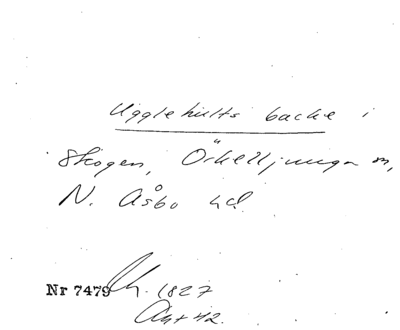 Ugglehults backe i
Skogen, Örkelljunga sn,
N. Åsbo hd
Nr 7479 1827